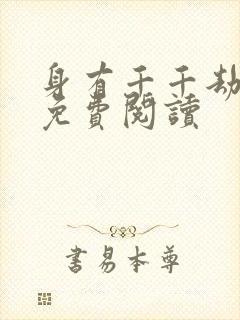 身有千千劫
免費閱讀
書易本尊